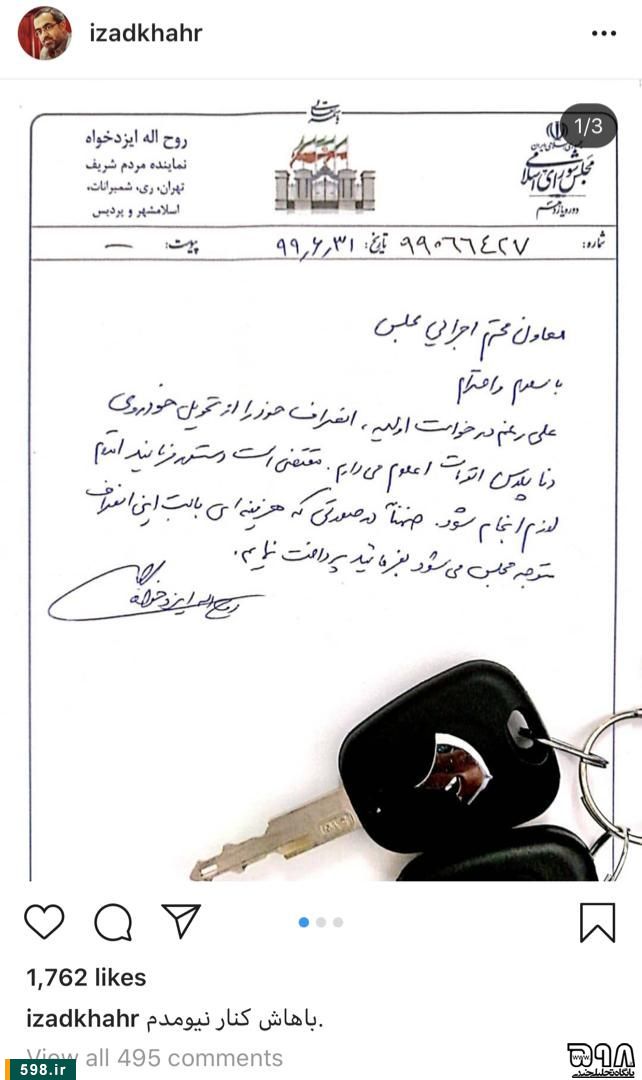 izadkhahr
1/3
روح اله ایزدخواه
نماینده مردم شریف
تهران، ری، شمیرانات،
اسلامشهر و پردیس
مجلس شورای اسلامی
دوره یازدهم
شماره: ۹۹۰۶۶۴۲۷ تاریخ: ۹۹,۶,۳۱ پیوست: —
معاون محترم اجرایی مجلس
با سلام و احترام
علی رغم درخواست اولیه، انصراف خود را از تحویل خودروی
دنا پلاس اعلام می دارم. مقتضی است دستور فرمائید اقدام
لازم انجام شود. ضمناً در صورتی که هزینه ای بابت این انصراف
متوجه مجلس می شود بفرمائید پرداخت نمایم.
روح اله ایزدخواه
1,762 likes
izadkhahr باهاش کنار نیومدم.
View all 495 comments
598.ir
۵۹۸
www